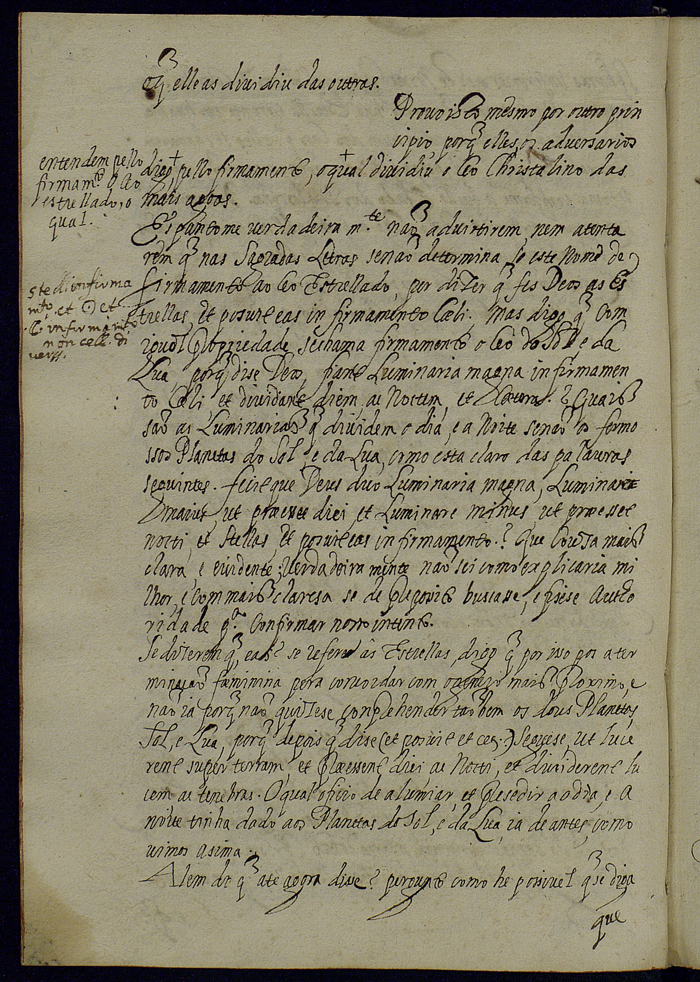 q̃ elle as diuidiu das outras.
Prouo isto mesmo por outro prin
cipio, porq̃ elles, os aduersarios
digo + pello firmamento, o qual + diuidiu o Ceo Christalino das
mais agoas.
entendem pello
firmamto. o Ceo
estrellado, o
qual.
Espantome uerdadeiram.te não aduirtirem, nem atenta
rem q̃ nas Sagradas Letras senão determina este nome de
firmamento ao Ceo Estrellado, por dizer q̃ fes Deos as Es
trellas, et posuit eas in firmamento Cæli. Mas digo q̃ com
igoal propriedade se chama firmamento o Ceo do Sol, e da
Lua, porq̃ disse Deos, fiant Luminaria magna in firmamen
to Cæli et diuidant diem, ac Noctem, et
non cell. di
uers.
Quais
são as Luminarias q̃ diuidem o dia, e a Noite senão os fermo
ssos Planetas do Sol, e da Lua, como esta claro das palauras
seguintes. fecitque Deus duo Luminaria magna, Luminare
maius, ut præesset diei, et Luminare minus, ut præesset
nocti, et stellas, et posuit eas in firmamento.? Que cousa mais
clara, e euidente; Uerdadeiramente não sei como explicaria mi
lhor, e com mais claresa se de preposito buscasse, e fisesse autho
ridade p.a confirmar nosso intento.
Se dizerem q̃ eas se refere âs Estrellas, digo q̃ por isso pos a ter
minação fæminina pera concordar com o genero mais proximo, e
não ia porq̃ não quizese comprehender tãobem os dous Planetas,
Sol, e Lua, porq̃ depois q̃ dise (et posuit et cet.) seguese, ut luce
rent super terram et præessent diei ac Nocti, et diuiderent lu
cem ac tenebras. O qual oficio de alumiar, et presedir ao dia, e a
noite tinha dado aos Planetas do Sol, e da Lua, ia de antes, como
uimos asima.
Alem do q̃ ate agora disse? pergunto como he posiuel q̃ se diga
que